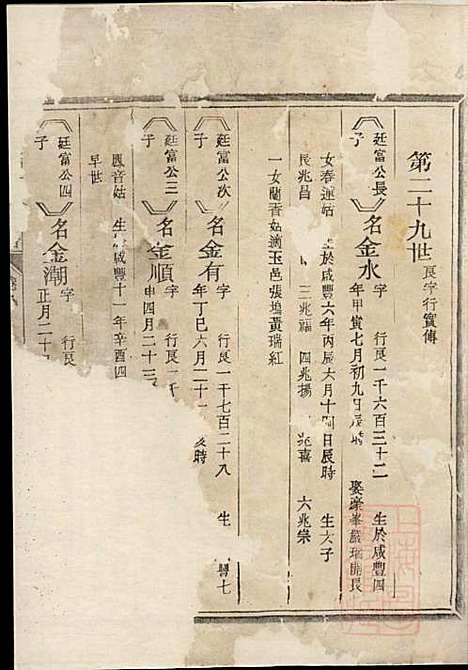 第二十九世 良字行實傳
廷富公長子 名金水 字 行良一千六百三十二 生於咸豐四
年甲寅七月初九日辰時 娶梁峯嚴瑞開長
女春蓮姑 生於咸豐六年丙辰六月十四日辰時 生六子
長兆昌 三兆福 四兆揚 兆喜 六兆宗
一女蘭香姑適玉邑張塢黃瑞紅
廷富公次子 名金有 字 行良一千七百二十八 生 豐七
年丁巳六月二十 亥時
廷富公三子 名金順 字 行良一千
申四月二十三
觀音姑 生 咸豐十一年辛酉四
早世
廷富公四子 名金潮 字 行良
正月二十